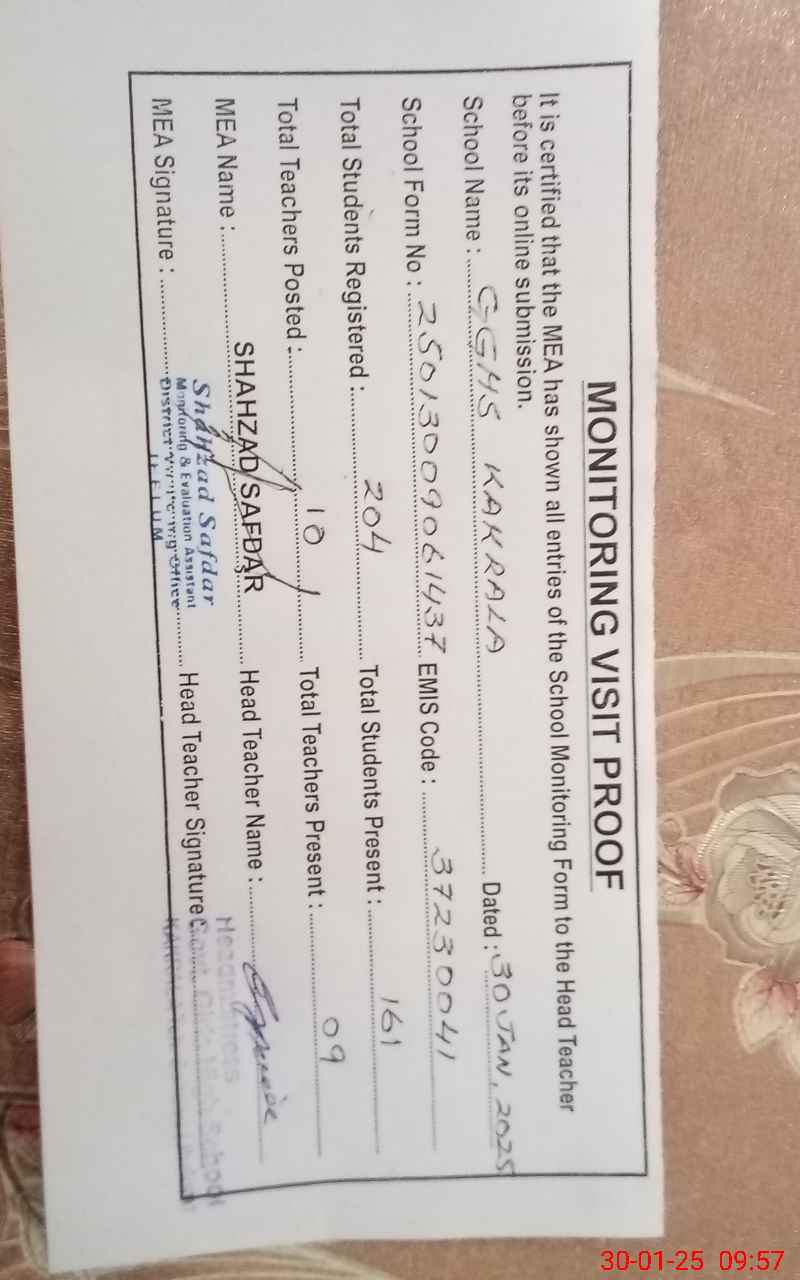 MONITORING VISIT PROOF
It is certified that the MEA has shown all entries of the School Monitoring Form to the Head Teacher
before its online submission.
School Name : GGHS KAKRALA Dated : 30 JAN, 2025
School Form No : 25013009061437 EMIS Code : 37230041
Total Students Registered : 204 Total Students Present : 161
Total Teachers Posted : 10 Total Teachers Present : 09
MEA Name : SHAHZAD SAFDAR Head Teacher Name :
MEA Signature : Head Teacher Signature :
Shahzad Safdar
Monitoring & Evaluation Assistant
District Monitoring Office
JHELUM
Headmistress
School
30-01-25 09:57